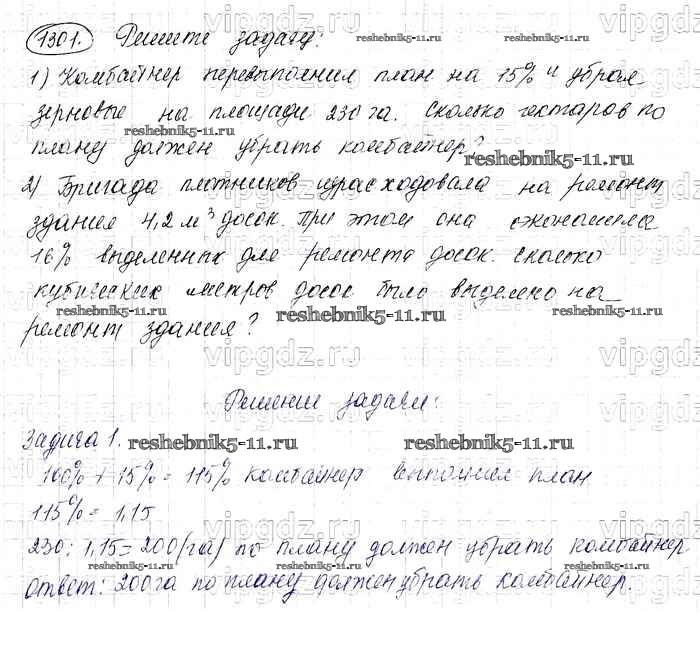 1301. Решите задачу:
1) Комбайнер перевыполнил план на 15% и убрал
зерновые на площади 230 га. Сколько гектаров по
плану должен убрать комбайнер?
2) Бригада плотников израсходовала на ремонт
здания 4,2 м³ досок. При этом она сэкономила
16% выделенных для ремонта досок. Сколько
кубических метров досок было выделено на
ремонт здания?
Решение задачи:
Задача 1.
100% + 15% = 115% комбайнер выполнил план
115% = 1,15
230 : 1,15 = 200 (га) по плану должен убрать комбайнер
Ответ: 200 га по плану должен убрать комбайнер.
reshebnik5-11.ru
vipgdz.ru